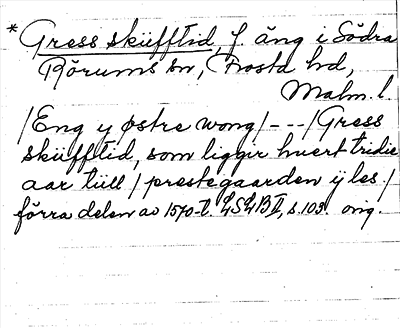 * Gress sküfftid, f. äng i Södra
Rörums sn, Frosta hd,
Malm. l.
/Eng y østre wong/---/Gress
sküfftid, som liggir huert tridie
aar tiill / prestegaarden ÿ les /
förra delen av 1570-t. LSLB II, s. 103. orig.